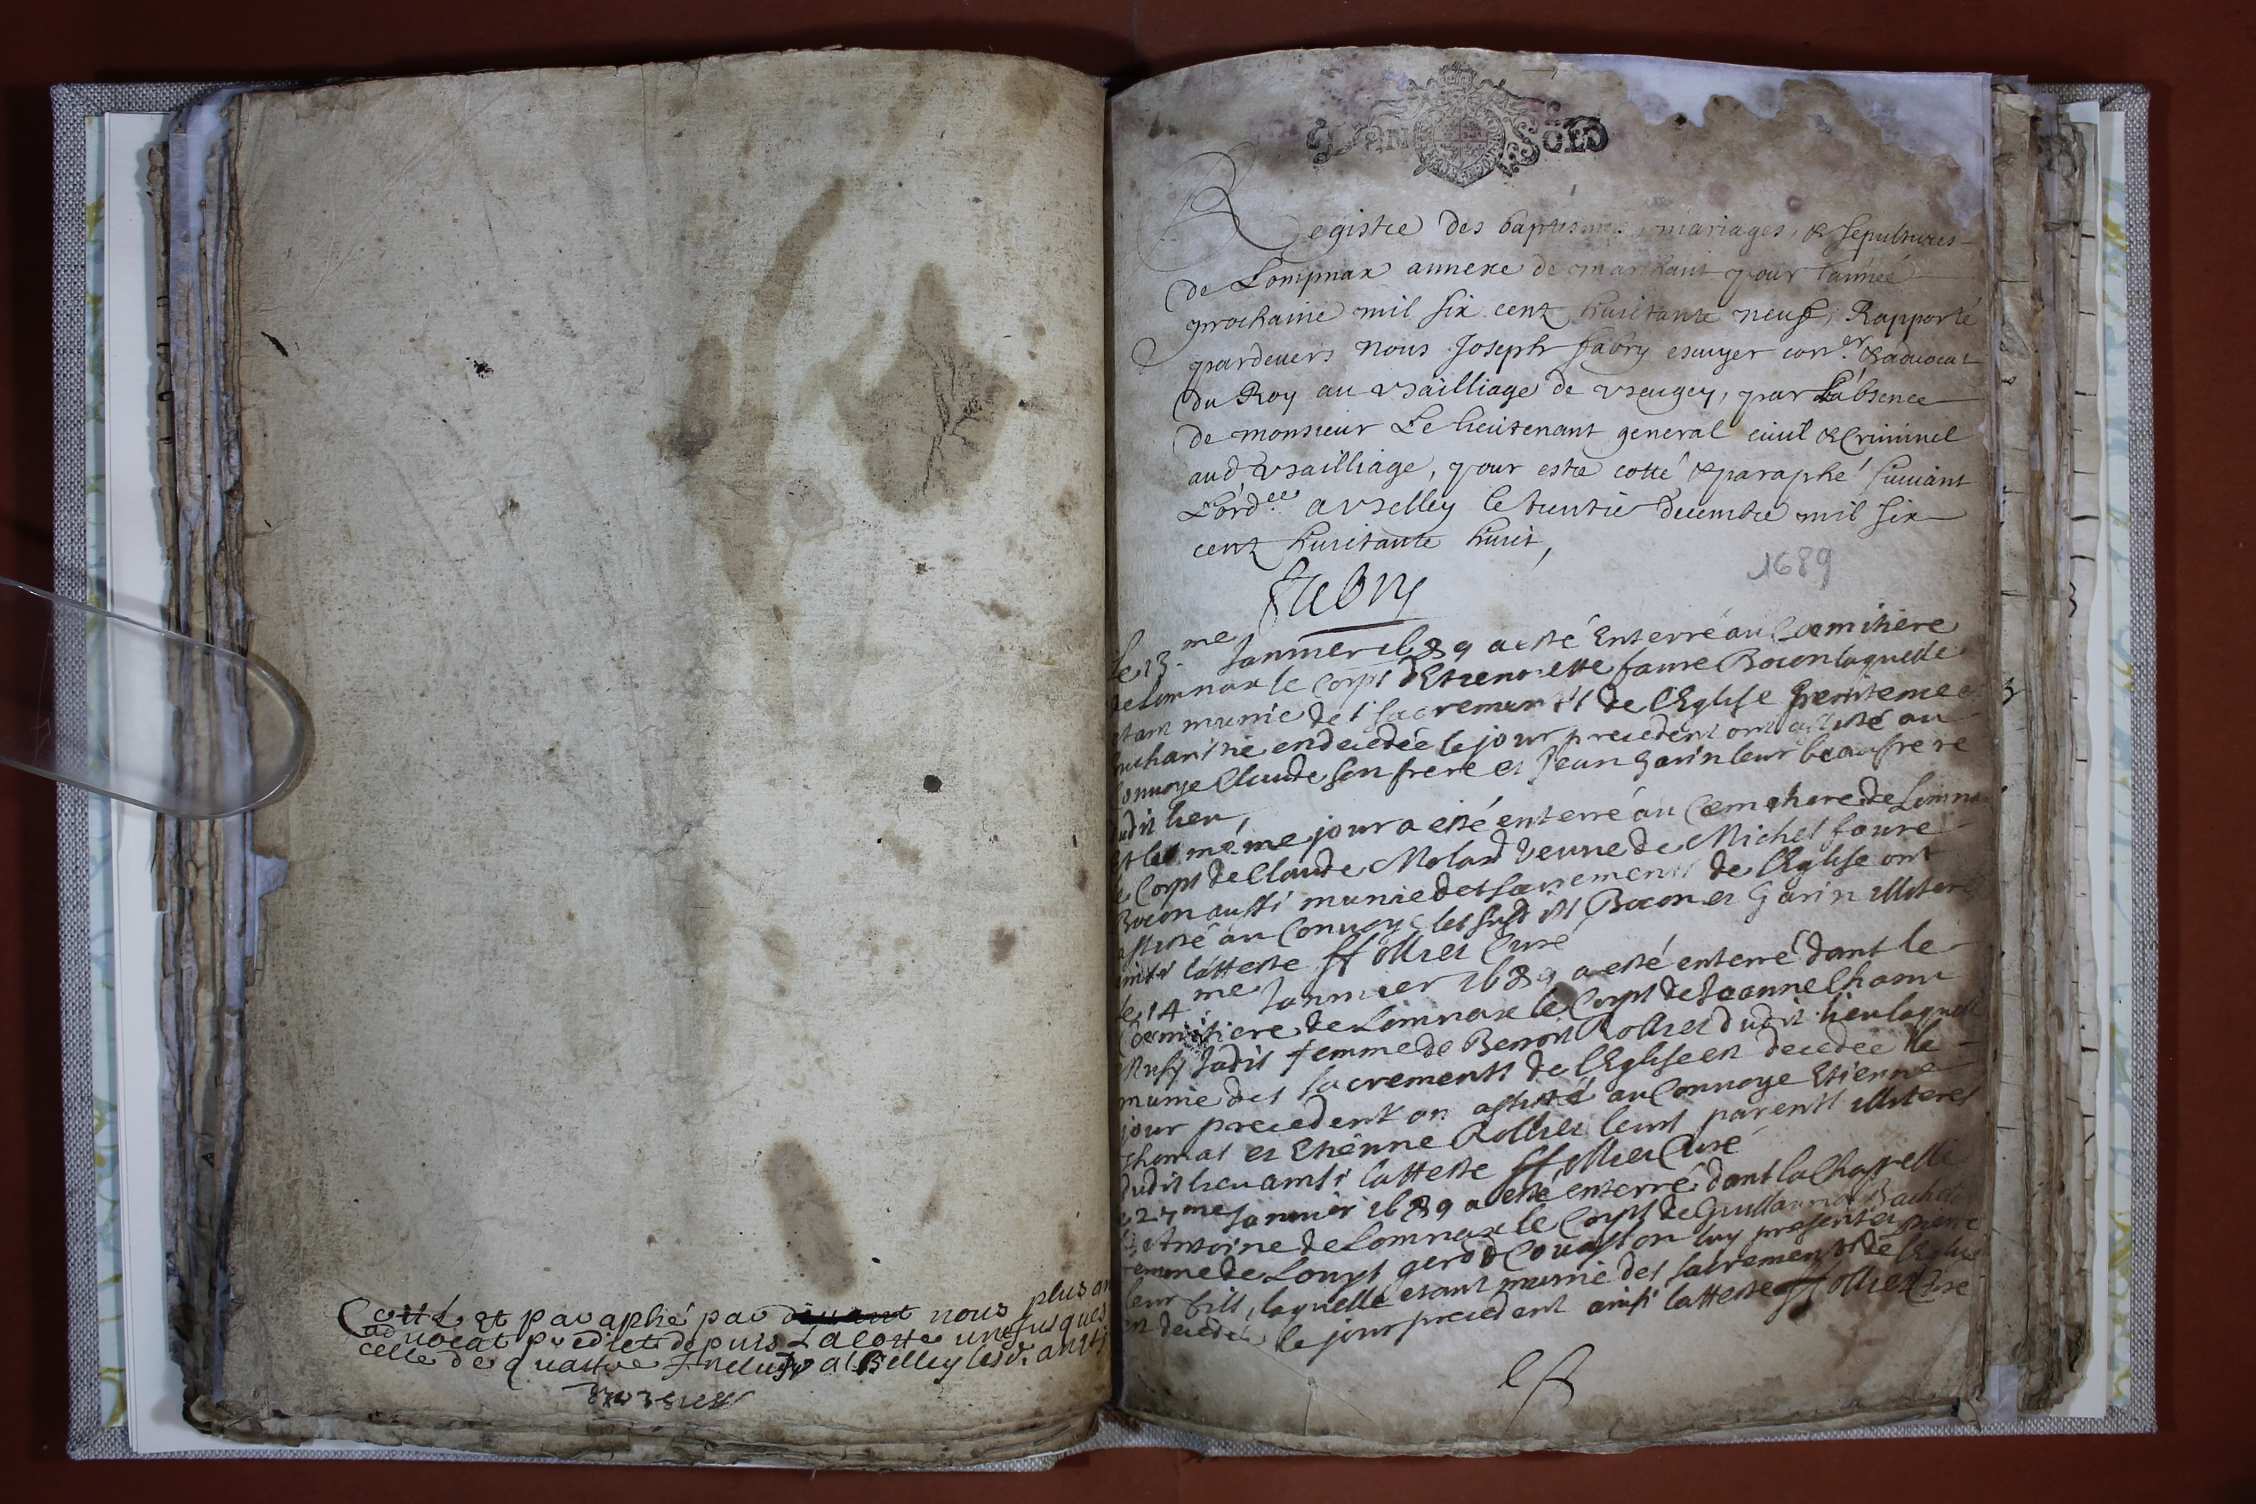 Cotté et paraphé par devant nous plus an
advocat predict depuis La cotte une jusques
celle de quattre Inclusiv a Belley lesd. an
SOLS
Registre des baptesmes, mariages, & sepultures
de Lompnax annexe de marchant pour l'année
prochaine mil six cent huitante neuf, Rapporté
pardevers nous Joseph fabry escuyer con.er & advocat
du Roy au Bailliage de Beugey, par L'absence
de monsieur Le lieutenant general civil & Criminel
aud Bailliage, pour estre cotté & paraphé suivant
L'ord.ce a Belley le trentie decembre mil six
cent huitante huit,
1689
Fabry
Le 13.me Janvier 1689 a esté Enterré au Coemitiere
de Lomnax le Corps d'Etiennette faure Bocon laquelle
etant munie des sacrements de l'Eglise penitence et
eucharistie en decedée le jour precedent ont assisté au
Convoye Claude son frere et Jean Garin leur beaufrere
dudit lieu,
Et le même jour a esté enterré au Coemitiere de Lomna
le Corps de Claude Molard veuve de Michel faure
Bocon aussi munie des sacrements de l'Eglise ont
assisté au Convoye les susdits Bocon et Garin illiteres
ainsi l'atteste ff ollier Curé
Le 14.me Janvier 1689 a esté enterré dans le
Coemitiere de Lomnax le Corps de Jeanne Chanu
Rusy Jadis femme de Benoit Rollet dudit lieu laquelle
munie des sacrements de l'Eglise en decedée le
jour precedent on assisté au Convoye Etienne
Thomas et Etienne Rollet leurs parents illiteres
dudit lieu ainsi l'atteste ff ollier Curé
Le 27me Janvier 1689 a esté enterré dans la Chappelle
St Antoine de Lomnax le Corps de Guillauma
femme de Louys gerod luy present et pierre
leur fils, laquelle etant munie des sacrements de l'Eglise
en decedée le jour precedent ainsi l'atteste ff ollier Curé